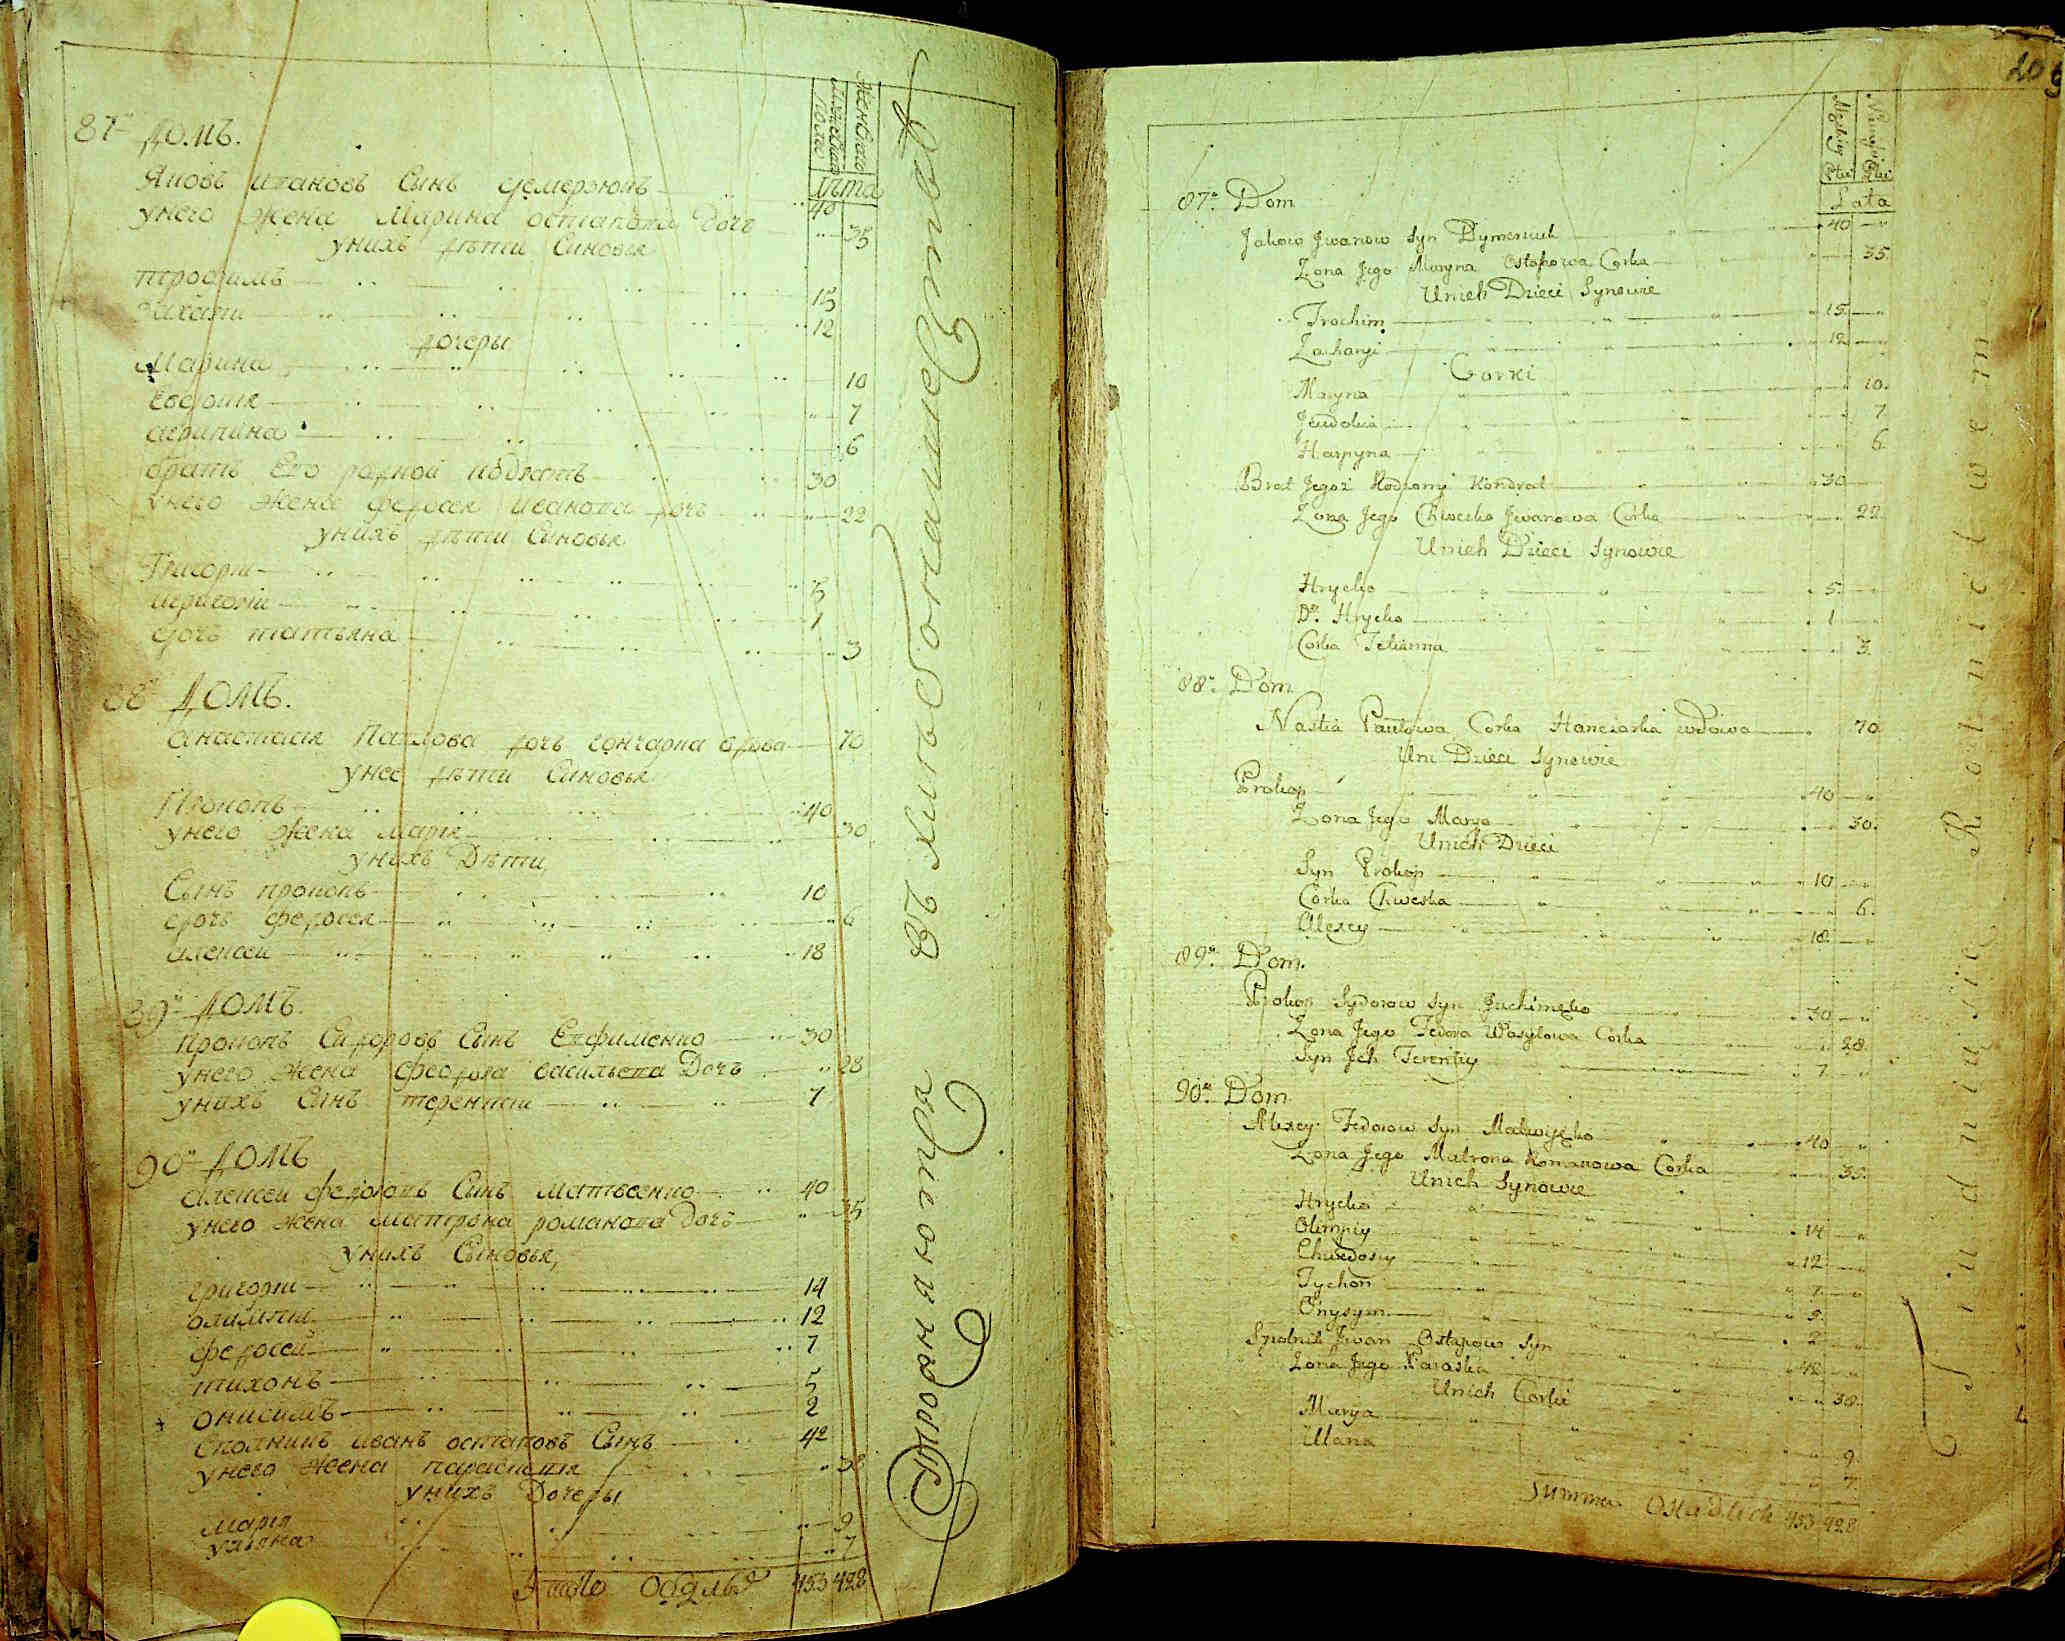 Женска
Мужеска
пола
Лѣта
87 Домъ.
Яковъ Ивановъ Сынъ Демерзюкъ 40
унего жена Марина остапова дочь 35
унихъ дѣти Сыновья
трофимъ 15
Захари 12
дочеры
Марина 10
Евдокия 7
агрипина 6
братъ Его родной 30
унего жена федося Иванова дочь 22
унихъ дѣти Сыновья
Григори 5
Григори 1
дочь татьяна 3
88 Домъ.
анастасия Павлова дочь гончарка вдова 70
унее дѣти Сыновья
Прокопъ 40
унего жена мария 30
унихъ Дѣти,
Сынъ прокопъ 10
дочь федосея 6
алексей 18
89 Домъ.
прокопъ Сидоровъ Сынъ Евфименко 30
унего жена феодора васильева Дочь 28
унихъ Сынъ терентий 7
90 Домъ
алексей федоровъ Сынъ матвеенко 40
унего жена матрона романова дочь 35
унихъ Сыновья,
григори 14
олимпи 12
федосей 7
тихонъ 5
онисимъ 2
Сполникъ иванъ остаповъ Сынъ 42
унего жена параскевия 38
унихъ Дочеры
мария 9
ульяна 7
Итого 453 428
Упражняются въ хлѣбопашествѣ
209
Męzkiey Płci
Płci
Lata
87. Dom
Jakow Jwanow Syn Dymerziuk 40
Zona Jego Maryna Ostapowa Corka 35
Unich Dzieci Synowie
Trochim 15
Zacharyi 12
Corki
Maryna 10
Jewdokia 7
Harpyna 6
Brat Jegoż Rodzony Kondrat 30
Zona Jego Chweska Jwanowa Corka 22
Unich Dzieci Synowie
Hrycko 5
Do. Hrycko 1
Corka Tetianna 3
88. Dom
Nastia Pawłowa Corka Hanczarka wdowa 70
Uni Dzieci Synowie
Prokop 40
Zona Jego Marya 30
Unich Dzieci
Syn Prokop 10
Corka Chweska 6
Alexey 18
89. Dom.
Prokop Sydorow Syn Juchimeńko 30
Zona Jego Fedora Wasylowa Corka 28
Syn Jch Terentiy 7
90. Dom
Alexey Fedorow Syn Matwijenko 40
Zona Jego Matrona Romanowa Corka 35
Unich Synowie
Hrycko 14
Olimpiy 12
Chwedosiy 7
Tychon 5
Onysym 2
Spolnik Jwan Ostapow Syn 42
Zona Jego Paraska 38
Unich Corki
Marya 9
Ulana 7
Summa Osiadlich 453 428
Trudnią się Rolnictwem